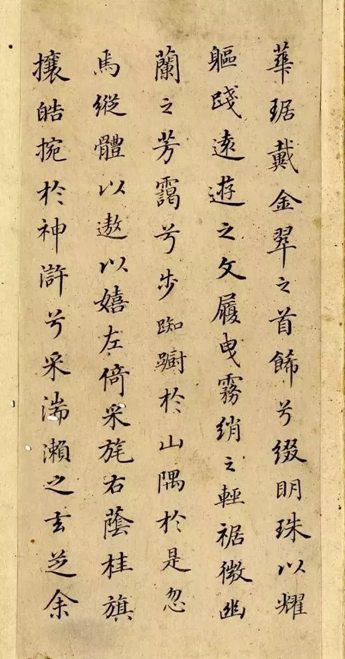 華琚戴金翠之首飾兮綴眀珠以耀
軀踐遠遊之文履曳霧綃之輕裾微幽
蘭之芳靄兮步踟躕於山隅於是忽
焉縱體以遨以嬉左倚采旄右蔭桂旗
攘皓捥於神滸兮采湍瀨之玄芝余